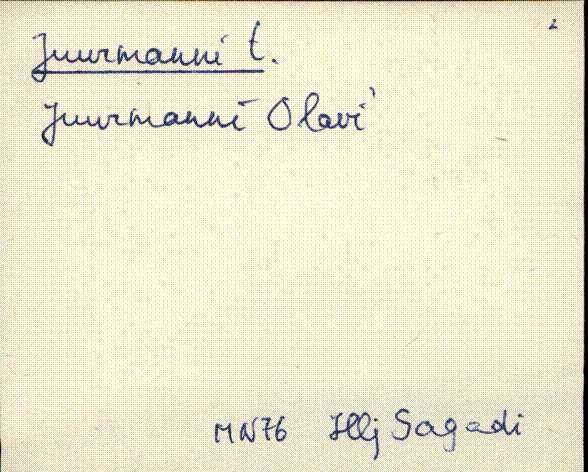 Juurmanni t.
Juurmanni Olavi
MN76 Hlj Sagadi